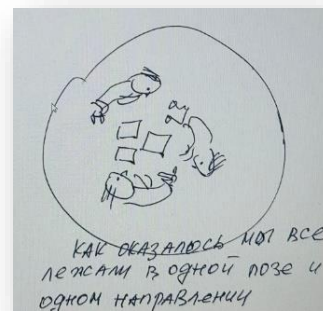 КАК ОКАЗАЛОСЬ МЫ ВСЕ
ЛЕЖАЛИ В ОДНОЙ ПОЗЕ И
ОДНОМ НАПРАВЛЕНИИ